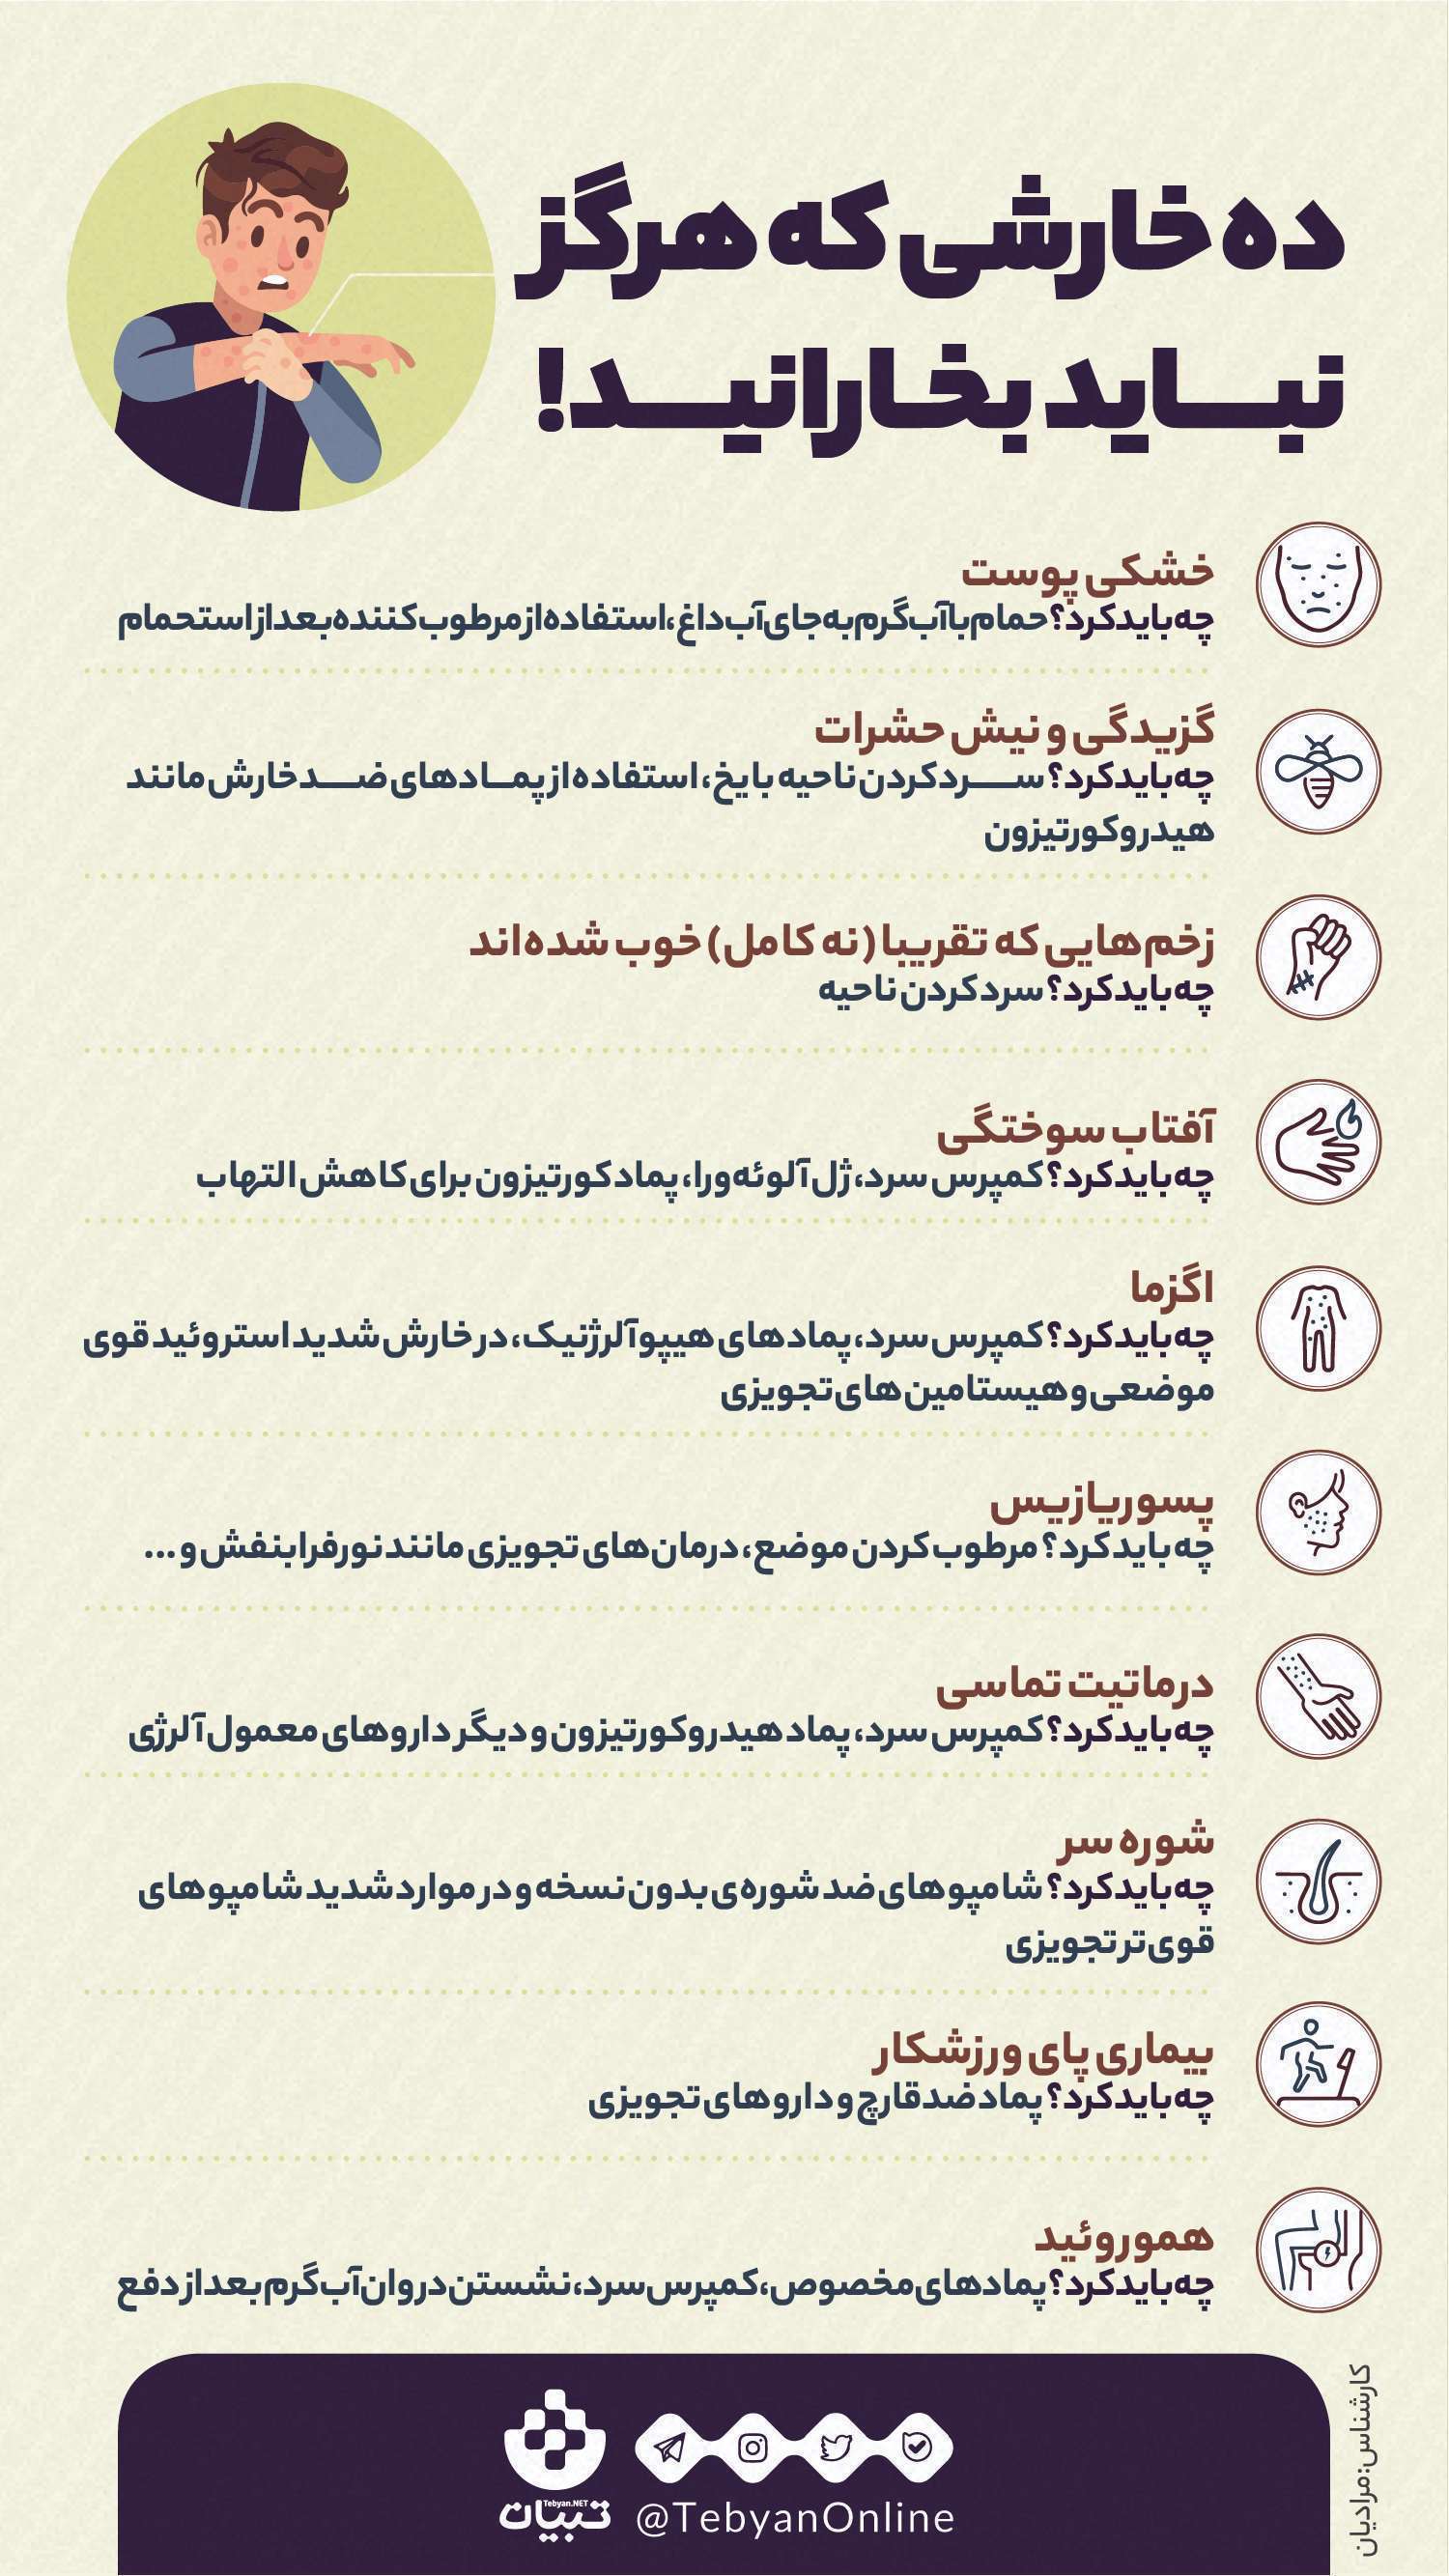 ده خارشی که هرگز
نبـــاید بخـارانیــد!
خشکی پوست
چه باید کرد؟ حمام با آب گرم به جای آب داغ، استفاده از مرطوب کننده بعد از استحمام
گزیدگی و نیش حشرات
چه باید کرد؟ ســـرد کردن ناحیه با یخ، استفاده از پمــادهای ضـــد خارش مانند
هیدروکورتیزون
زخم‌هایی که تقریبا (نه کامل) خوب شده‌اند
چه باید کرد؟ سرد کردن ناحیه
آفتاب سوختگی
چه باید کرد؟ کمپرس سرد، ژل آلوئه‌ورا، پماد کورتیزون برای کاهش التهاب
اگزما
چه باید کرد؟ کمپرس سرد، پمادهای هیپوآلرژنیک، در خارش شدید استروئید قوی
موضعی و هیستامین‌های تجویزی
پسوریازیس
چه باید کرد؟ مرطوب کردن موضع، درمان‌های تجویزی مانند نور فرابنفش و ...
درماتیت تماسی
چه باید کرد؟ کمپرس سرد، پماد هیدروکورتیزون و دیگر داروهای معمول آلرژی
شوره سر
چه باید کرد؟ شامپوهای ضد شوره‌ی بدون نسخه و در موارد شدید شامپوهای
قوی‌تر تجویزی
بیماری پای ورزشکار
چه باید کرد؟ پماد ضد قارچ و داروهای تجویزی
هموروئید
چه باید کرد؟ پمادهای مخصوص، کمپرس سرد، نشستن در وان آب گرم بعد از دفع
کارشناس: مرادیان
Tebyan.NET
تبیان
@TebyanOnline